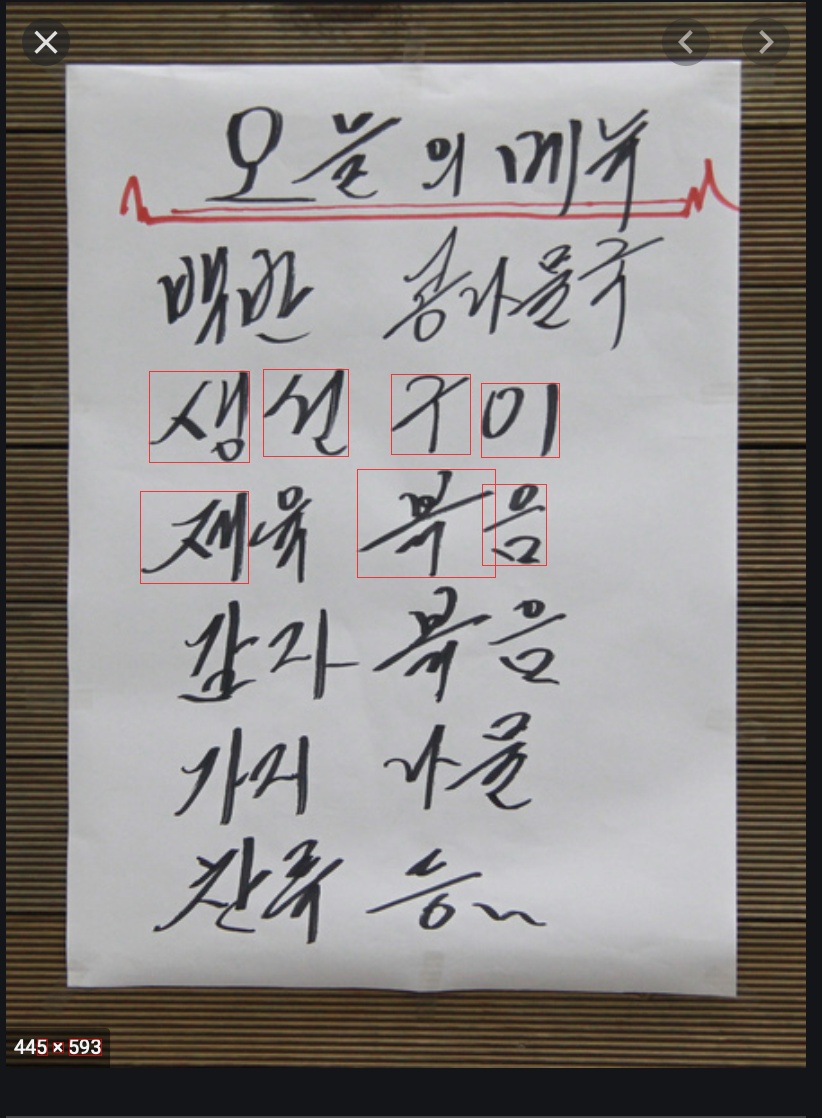 오늘의 메뉴
백반 콩나물국
생선 구이
제육 볶음
감자 볶음
가지 나물
445 × 593